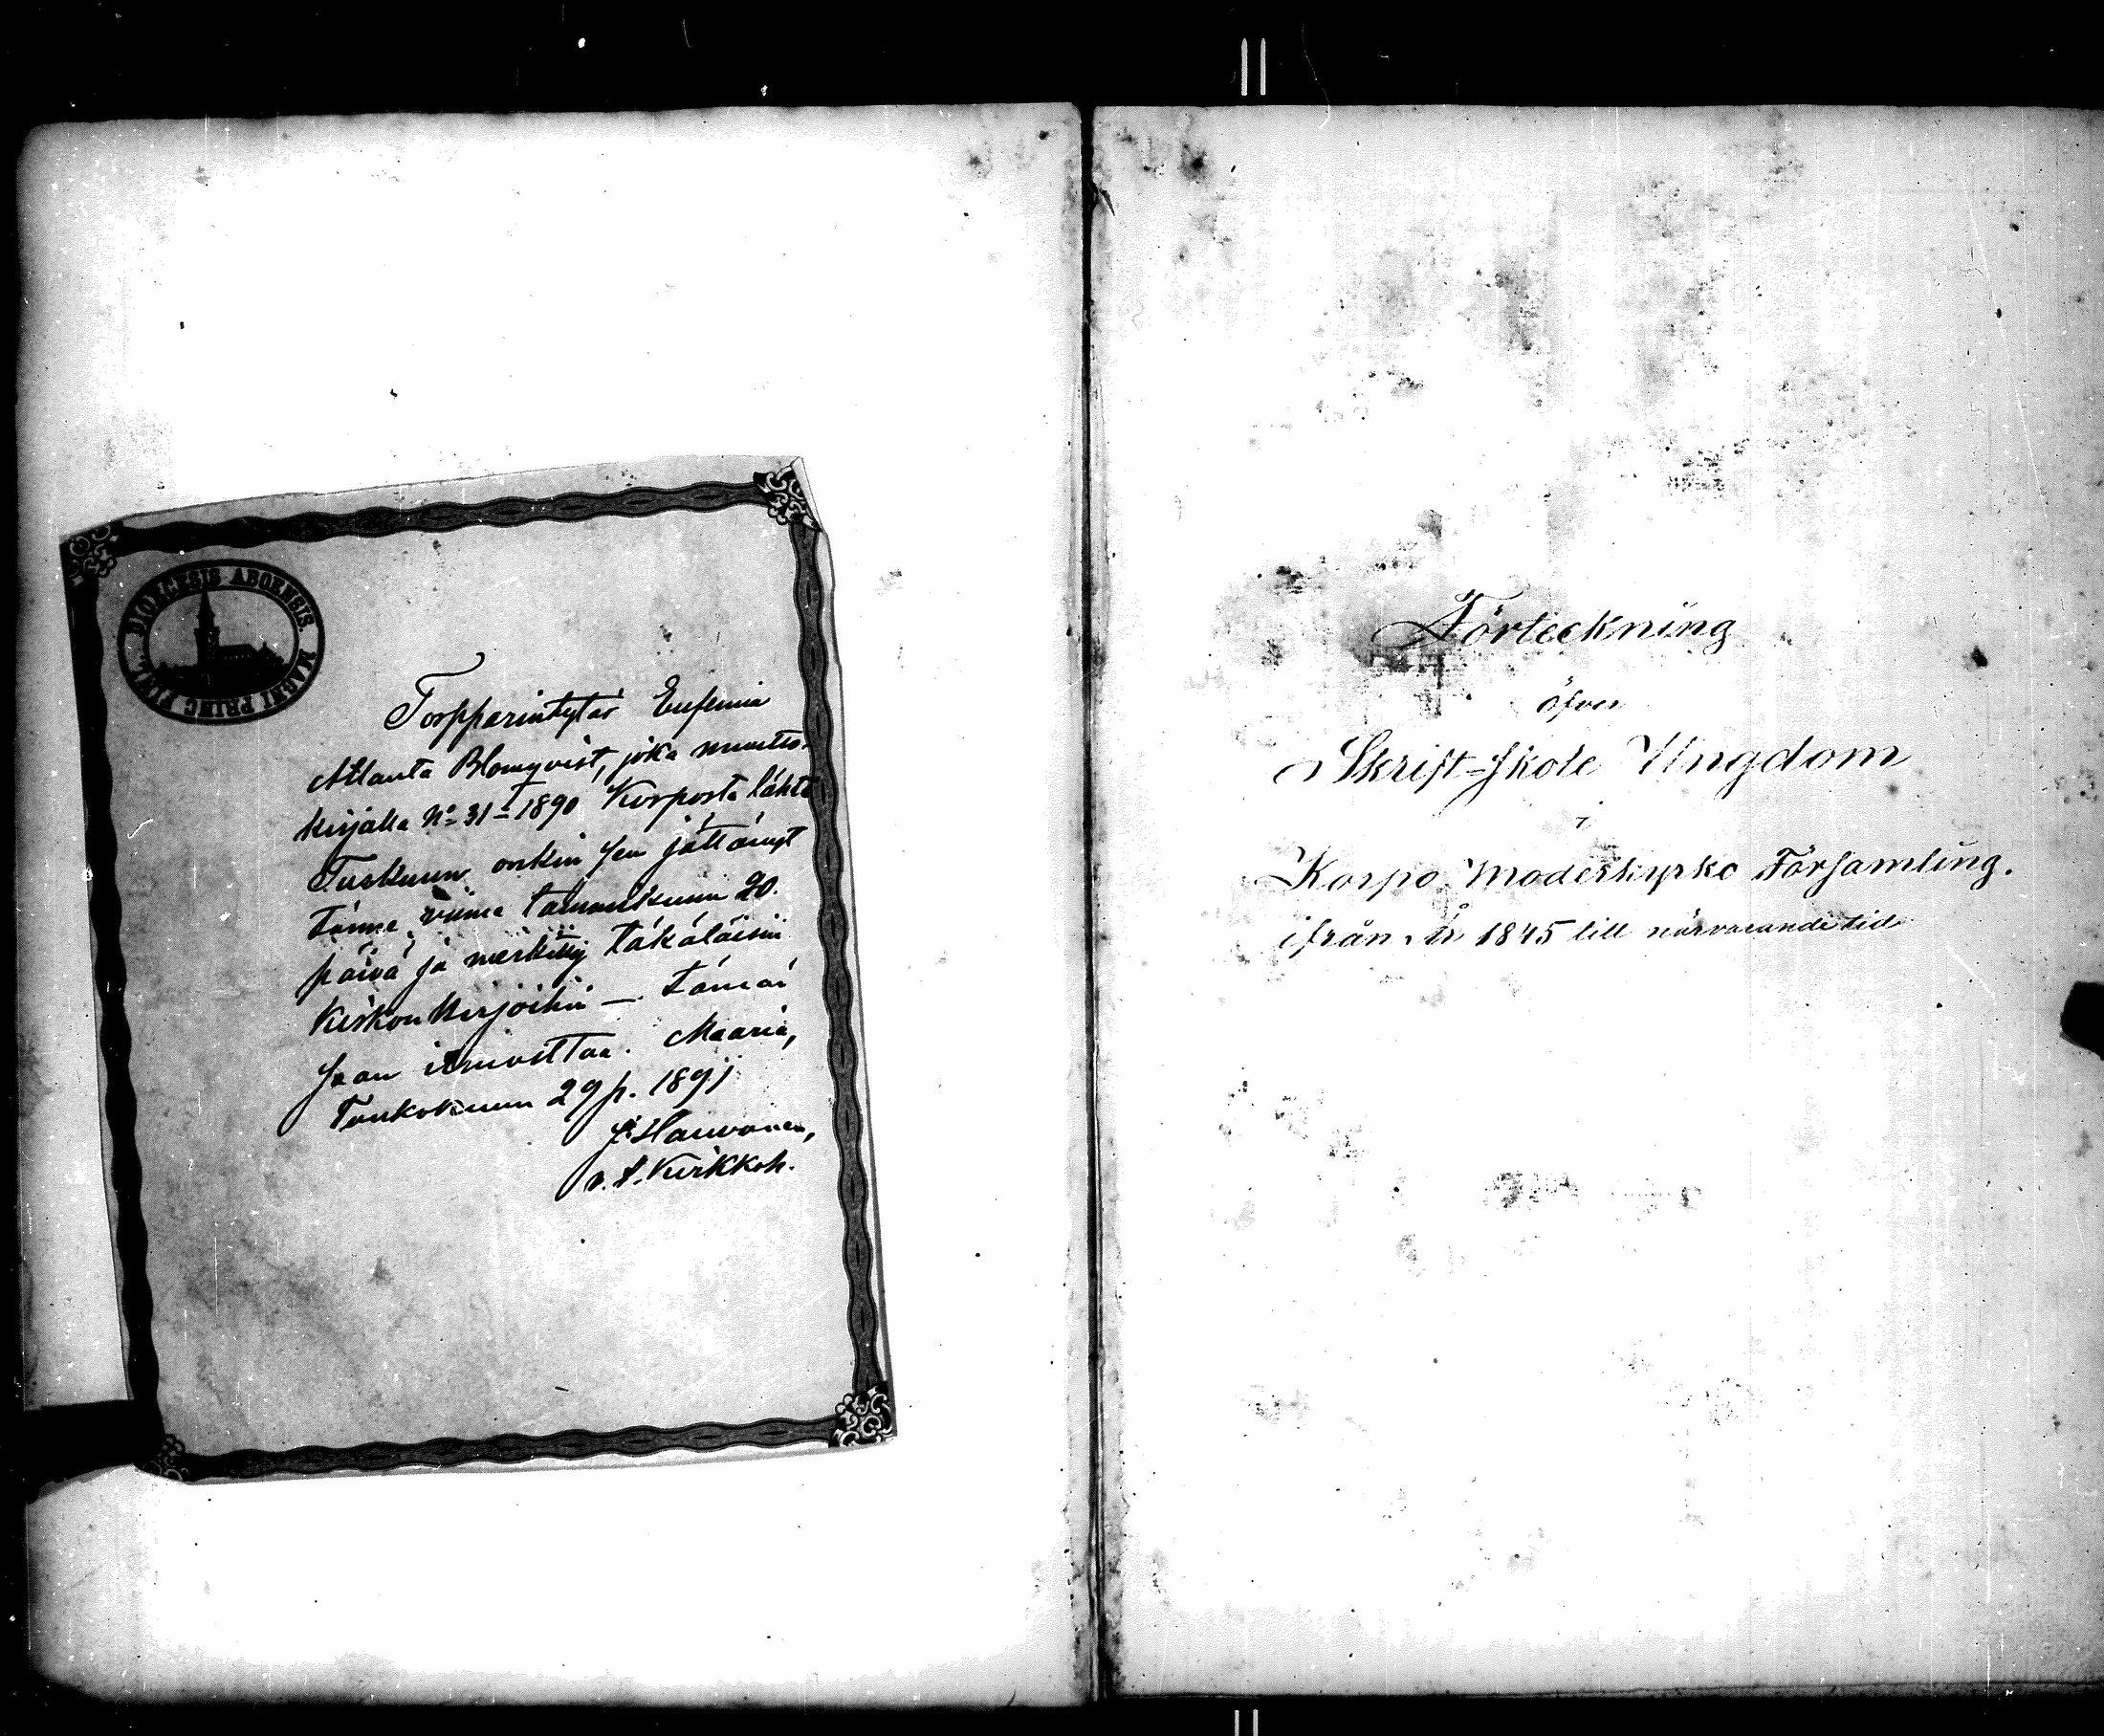 DIOECESIS ABOENSIS. MAGNI PRINC. FINL.
Torpparintytär Eufemia
Atlanta Blomqvist, joka muutto-
kirjalla No 31 - 1890 Korposta lähti
Turkuun onkin sen jättänyt
tänne viime tammikuun 20.
päivä ja merkitty täkäläisiin
Kirkonkirjoihin — tämän
saan ilmoittaa. Maaria,
Toukokuun 29 p. 1891
v. t. Kirkkoh.
Förteckning
öfver
Skrift-skole Ungdom
i
Korpo Moderkyrko Församling.
ifrån år 1845 till närvarande tid